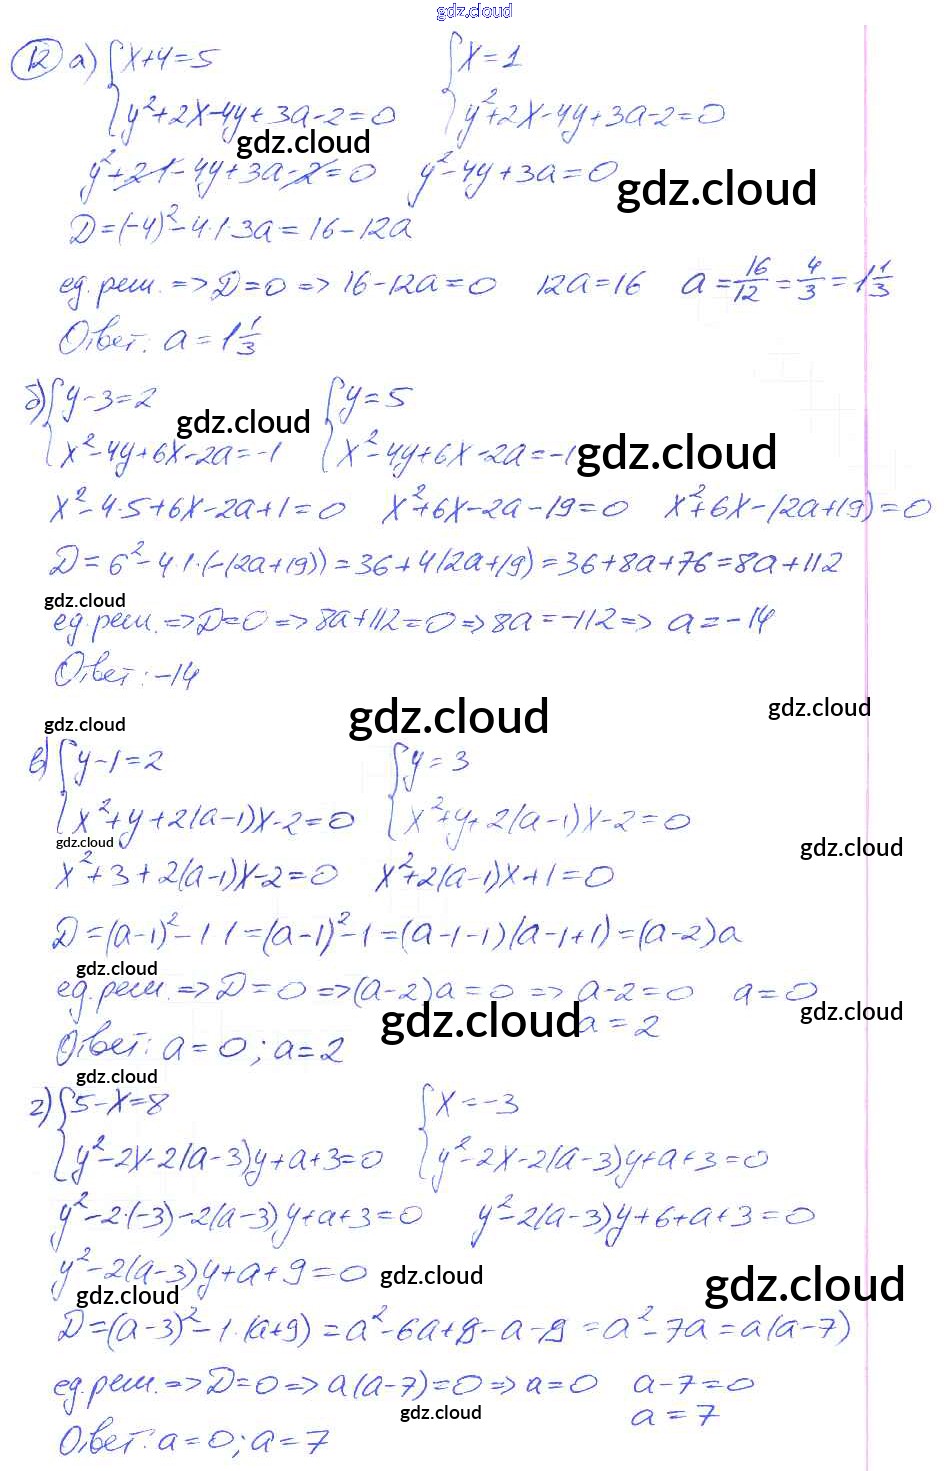 gdz.cloud
12 а) {x+4=5 {x=1
y²+2x-4y+3a-2=0 y²+2x-4y+3a-2=0
gdz.cloud
y²+2·1-4y+3a-2=0 y²-4y+3a=0
gdz.cloud
D=(-4)²-4·1·3a=16-12a
ед. реш. => D=0 => 16-12a=0 12a=16 a=16/12=4/3=1 1/3
Ответ: a=1 1/3
б) {y-3=2 {y=5
gdz.cloud
x²-4y+6x-2a=-1 x²-4y+6x-2a=-1
gdz.cloud
x²-4·5+6x-2a+1=0 x²+6x-2a-19=0 x²+6x-(2a+19)=0
D=6²-4·1·(-(2a+19))=36+4(2a+19)=36+8a+76=8a+112
gdz.cloud
ед. реш. => D=0 => 8a+112=0 => 8a=-112 => a=-14
Ответ: -14
gdz.cloud gdz.cloud gdz.cloud
в) {y-1=2 {y=3
x²+y+2(a-1)x-2=0 x²+y+2(a-1)x-2=0
gdz.cloud gdz.cloud
x²+3+2(a-1)x-2=0 x²+2(a-1)x+1=0
D=(a-1)²-1·1=(a-1)²-1=(a-1-1)(a-1+1)=(a-2)a
gdz.cloud
ед. реш. => D=0 => (a-2)a=0 => a-2=0 a=0
gdz.cloud a=2 gdz.cloud
Ответ: a=0; a=2
gdz.cloud
г) {5-x=8 {x=-3
y²-2x-2(a-3)y+a+3=0 y²-2x-2(a-3)y+a+3=0
y²-2·(-3)-2(a-3)y+a+3=0 y²-2(a-3)y+6+a+3=0
y²-2(a-3)y+a+9=0
gdz.cloud gdz.cloud gdz.cloud
D=(a-3)²-1·(a+9)=a²-6a+9-a-9=a²-7a=a(a-7)
ед. реш. => D=0 => a(a-7)=0 => a=0 a-7=0
gdz.cloud a=7
Ответ: a=0; a=7